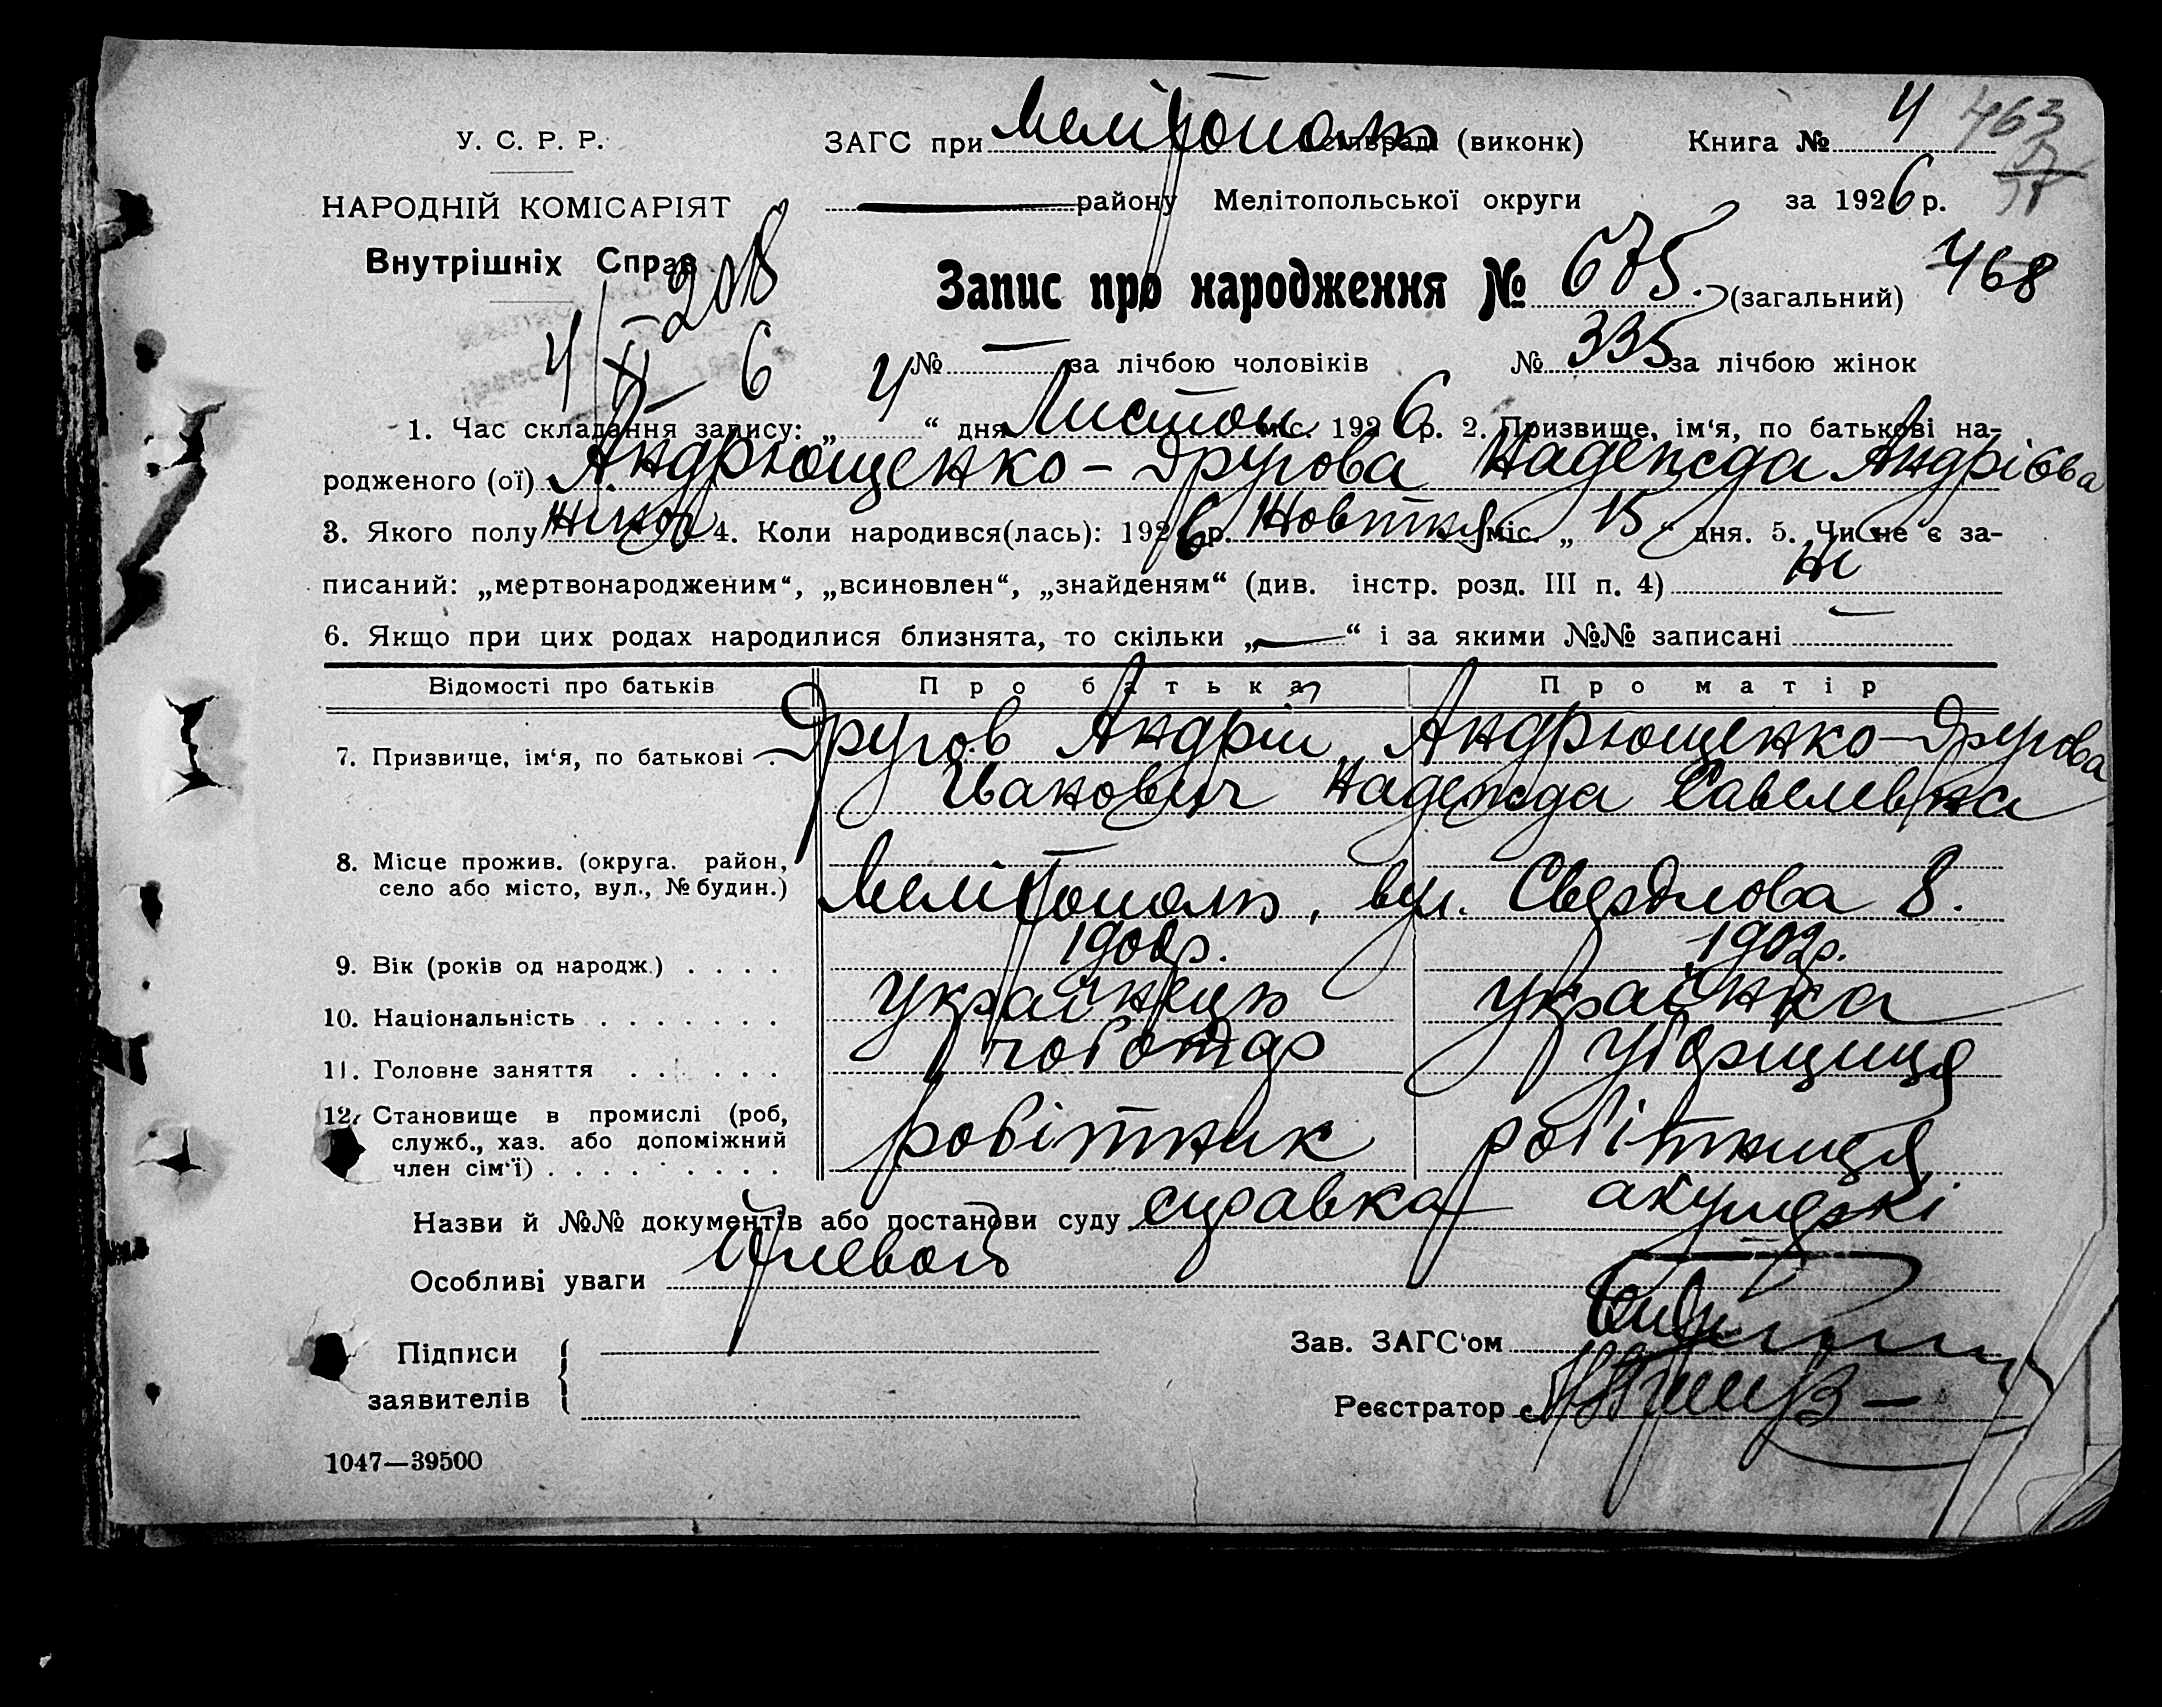 У. С. Р. Р.
ЗАГС при Мелітополь сільраді (виконк)
Книга № 4
463
НАРОДНІЙ КОМІСАРІЯТ
району Мелітопольської округи
за 1926 р.
Внутрішніх Справ
Запис про народження № 675. (загальний)
468
№ — за лічбою чоловіків № 335 за лічбою жінок
4/XI 6
1. Час складання запису: „4“ дня Листоп. міс. 1926 р. 2. Призвище, ім‘я, по батькові на-
родженого (ої) Андрющенко-Другова Надежда Андрієва
3. Якого полу жіноч 4. Коли народився(лась): 1926 р. Жовтня міс. „15“ дня. 5. Чи не є за-
писаний: „мертвонародженим“, „всиновлен“, „знайденям“ (див. інстр. розд. III п. 4) ні
6. Якщо при цих родах народилися близнята, то скільки „—“ і за якими №№ записані —
Відомості про батьків Про батька Про матір
7. Призвище, ім‘я, по батькові . Другов Андрій Андрющенко-Другова
Іванович Надежда Савелевна
8. Місце прожив. (округа. район,
село або місто, вул., № будин.) Мелітополь, вул. Свердлова 8.
9. Вік (років од народж.) . . . . 1902р.
10. Національність . . . . . . . українець українка
11. Головне заняття . . . . . . чоботар уборщиця
12. Становище в промислі (роб,
служб., хаз. або допоміжний
член сім‘ї) . . . . . . . . . робітник робітниця
Назви й №№ документів або постанови суду справка акушеркі
Особливі уваги
Підписи
заявителів
Зав. ЗАГС‘ом
Реєстратор
1047—39500